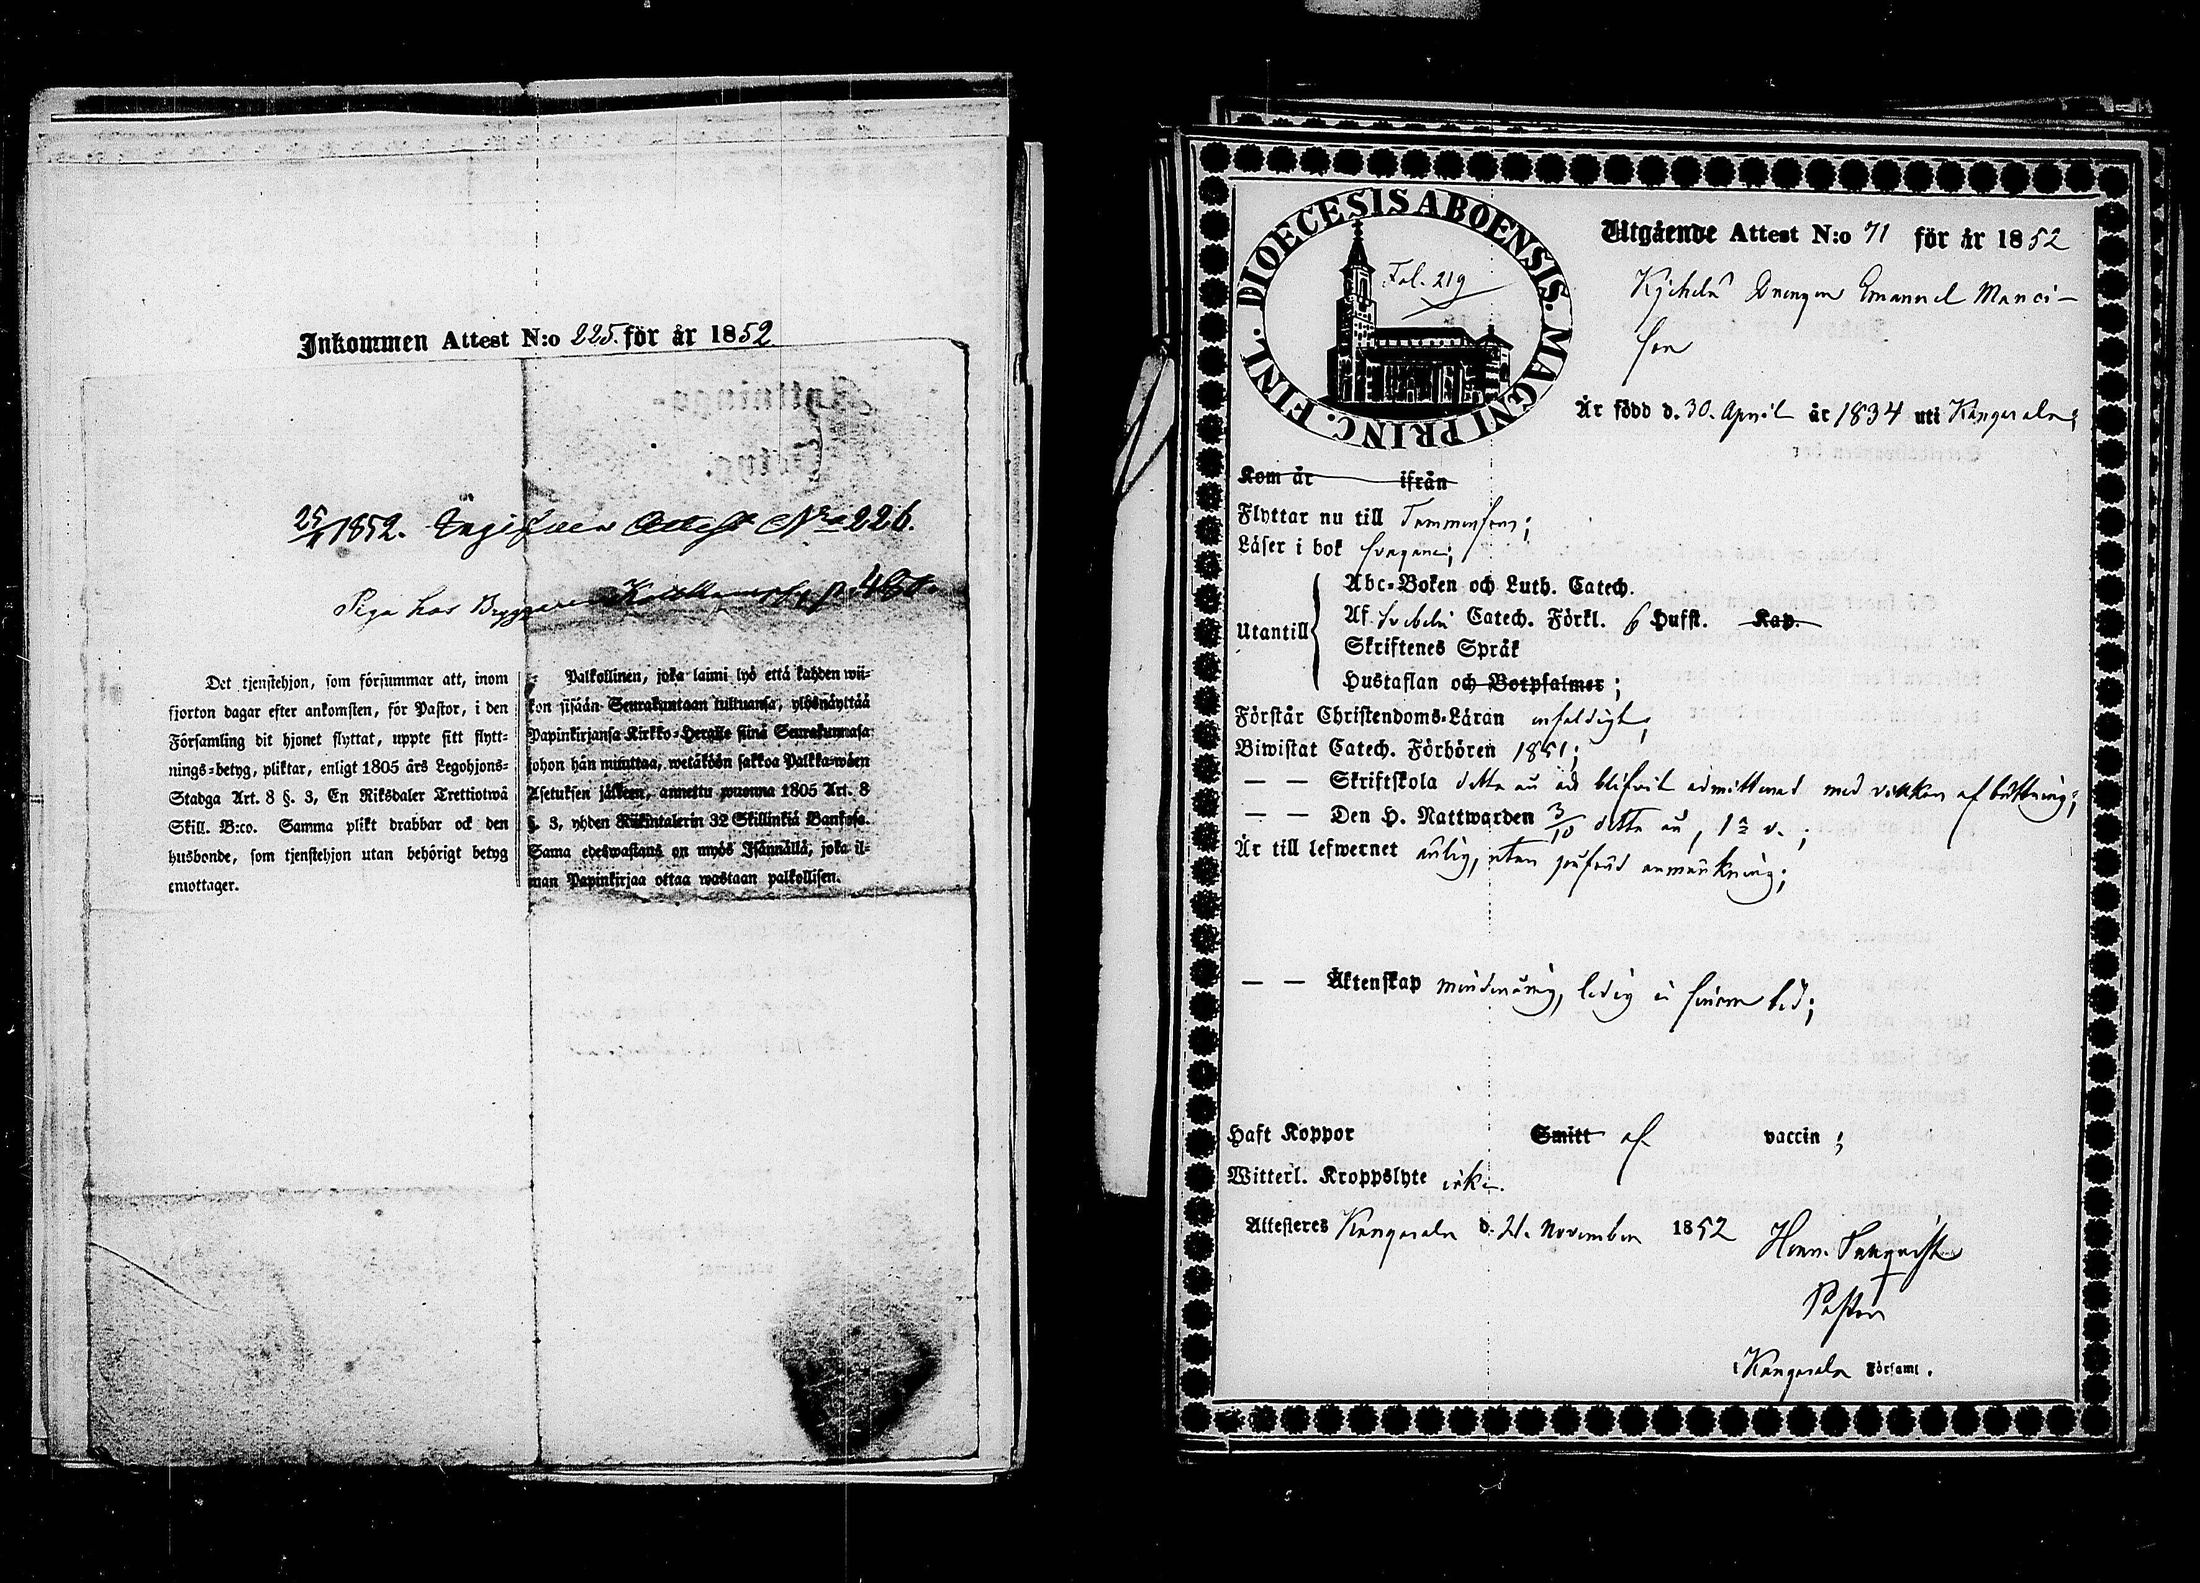 Inkommen Attest N:o 225. för år 1852
25/11 1852. Ingifven Attest No 226.
Piga hos Bryggaren p. 480.
Det tjenstehjon, som försummar att, inom
fjorton dagar efter ankomsten, för Pastor, i den
Församling dit hjonet flyttat, uppte sitt flytt-
nings-betyg, pliktar, enligt 1805 års Legohjons-
Stadga Art. 8 §. 3, En Riksdaler Trettiotwå
Skill. B:co. Samma plikt drabbar ock den
husbonde, som tjenstehjon utan behörigt betyg
emottager.
Palkollinen, joka laimi lyö että kahden wii-
kon sisään Seurakuntaan tultuansa, ylösnäyttää
Papinkirjansa Kirkko-Herralle siinä Seurakunnasa
johon hän muuttaa, wetäköön sakkoa Palkka-wäen
Asetuksen jälkeen, annettu wuonna 1805 Art. 8
§. 3, yhden Riikintalerin 32 Skillinkiä Bankosa.
Sama edeswastaus on myös Isännällä, joka il-
man Papinkirjaa ottaa wastaan palkollisen.
DIOECESIS ABOENSIS. MAGNI PRINC. FINL.
Fol. 219
Utgående Attest N:o 71 för år 1852
Drengen Emanuel
son
Är född d. 30. April år 1834 uti Kangasala;
Kom år ifrån
Flyttar nu till Tammerfors;
Läser i bok svagare;
Utantill
Abc-Boken och Luth. Catech.
Af Svebelii Catech. Förkl. 6 Hufst. Kap.
Skriftenes Språk
Hustaflan och Botpsalmer;
Förstår Christendoms-Läran enfaldigt;
Biwistat Catech. Förhören 1851;
— — Skriftskola detta år och blifvit admitterad med villkor af bättring;
— — Den H. Nattwarden 3/10 detta år, 1a .;
Är till lefwernet ärlig, utan anmärkning;
— — Äktenskap minderårig, ledig ;
Haft Koppor Smitt af vaccin;
Witterl. Kroppslyte icke.
Attesteres Kangasala d. 21. November 1852
Pastor
i Kangasala Församl.